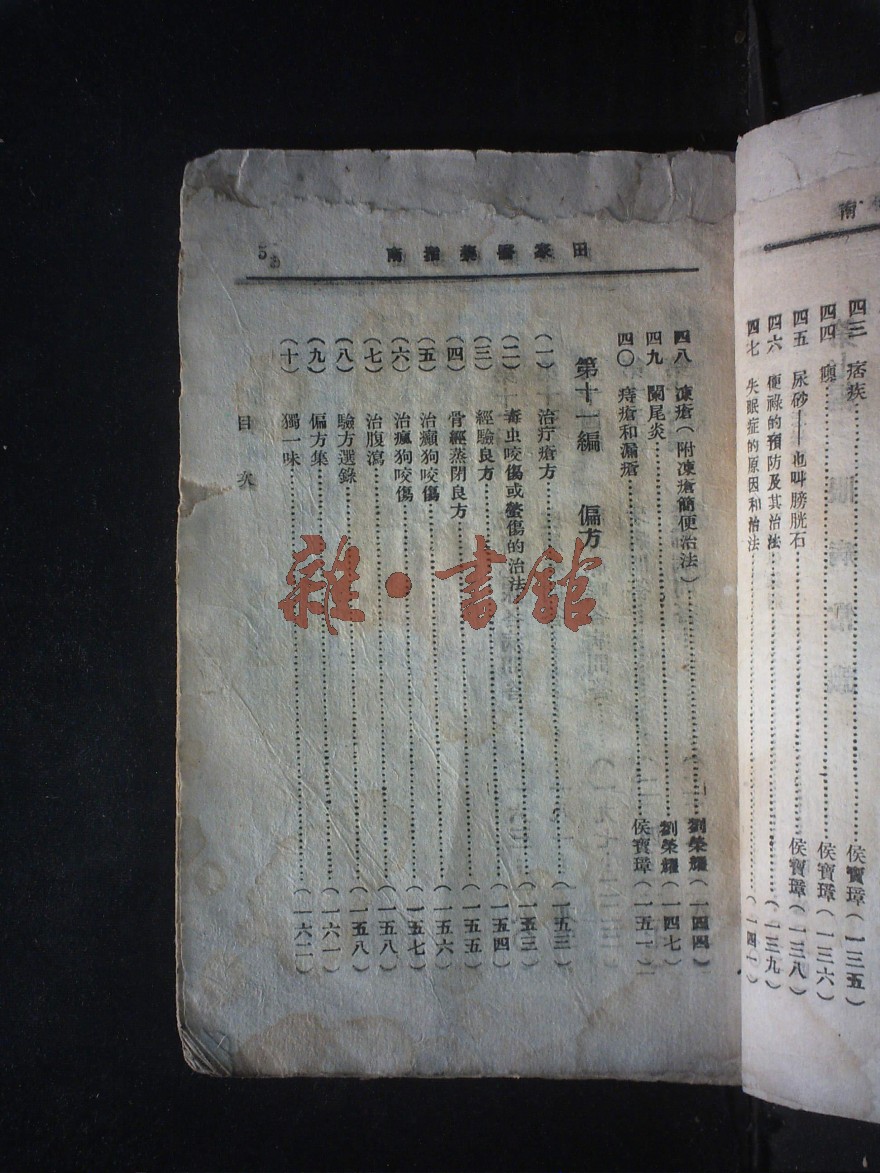 南
四三　痞疾……侯寶璋（一三五）
四四　瘊……侯寶璋（一三六）
四五　尿砂——也叫膀胱石……侯寶璋（一三八）
四六　便祕的預防及其治法……（一三九）
四七　失眠症的原因和治法……（一四一）
田家醫藥指南
5
四八　凍瘡（附凍瘡簡便治法）……劉榮耀（一四四）
四九　闌尾炎……劉榮耀（一四七）
四〇　痔瘡和漏瘡……侯寶璋（一五一）
第十一編　偏方
（一）　治疔瘡方……（一五三）
（二）　毒虫咬傷或螫傷的治法……（一五三）
（三）　經驗良方……（一五四）
（四）　骨經蒸閉良方……（一五五）
（五）　治癲狗咬傷……（一五六）
（六）　治瘋狗咬傷……（一五七）
（七）　治腹瀉……（一五八）
（八）　驗方選錄……（一五八）
（九）　偏方集……（一六一）
（十）　獨一味……（一六二）
目次
雜·書館